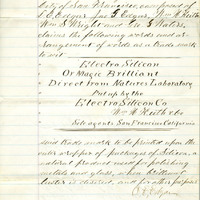 City of San Francisco, our brand of
J. C. Edgar Jas. S. Edgar, Wm. H. Keith
Wm. J. Wright and Geo. S.
claims the following words and ar-
rangement of words as a trade mark
to wit
Electro Silicon
Or Magic Brilliant
Direct from Natures Laboratory
Put up by the
Electro Silicon Co.
Wm H Keith & Co
Sole agents San Francisco California
said trade mark to be printed upon the
outer wrapper of packages of Silicon, a
natural product used for polishing
metals and glass, when brilliant
luster is desired, and for other purposes